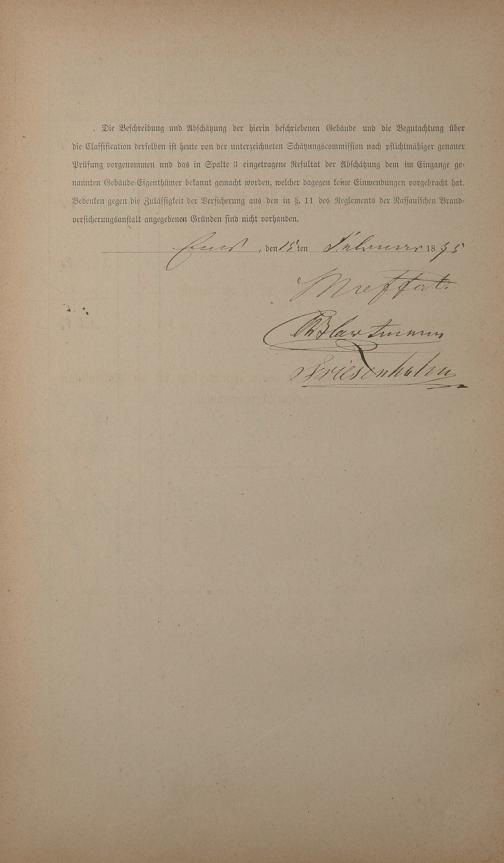 Die Beschreibung und Abschätzung der hierin beschriebenen Gebäude und die Begutachtung über
die Classification derselben ist heute von der unterzeichneten Schätzungscommission nach pflichtmäßiger genauer
Prüfung vorgenommen und das in Spalte 3 eingetragene Resultat der Abschätzung dem im Eingange ge-
nannten Gebäude-Eigenthümer bekannt gemacht worden, welcher dagegen keine Einwendungen vorgebracht hat.
Bedenken gegen die Zulässigkeit der Versicherung aus den in §. 11 des Reglements der Nassauischen Brand-
versicherungsanstalt angegebenen Gründen sind nicht vorhanden.
Ems, den 15ten Februar 1895
Hartmann
Friesenhahn